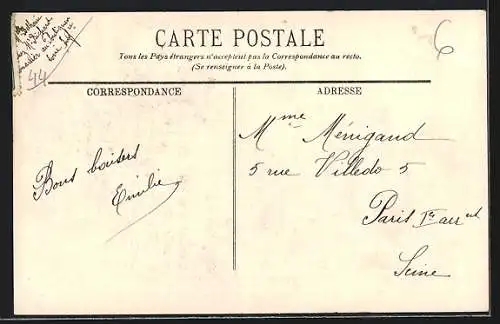 CARTE POSTALE
Tous les Pays étrangers n'acceptent pas la Correspondance au recto.
(Se renseigner à la Poste).
6
44
CORRESPONDANCE
Bons baisers
Emilie
ADRESSE
Mme Ménigand
5 rue Villedo 5
Paris Ier arrnt
Seine